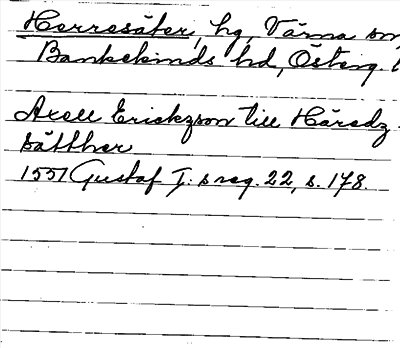 Herresäter, hg, Värna sn
Bankekinds hd, Österg. l
Axell Erickzson till Häradz-
sätther
1551 Gustaf I:s reg. 22, s. 178.